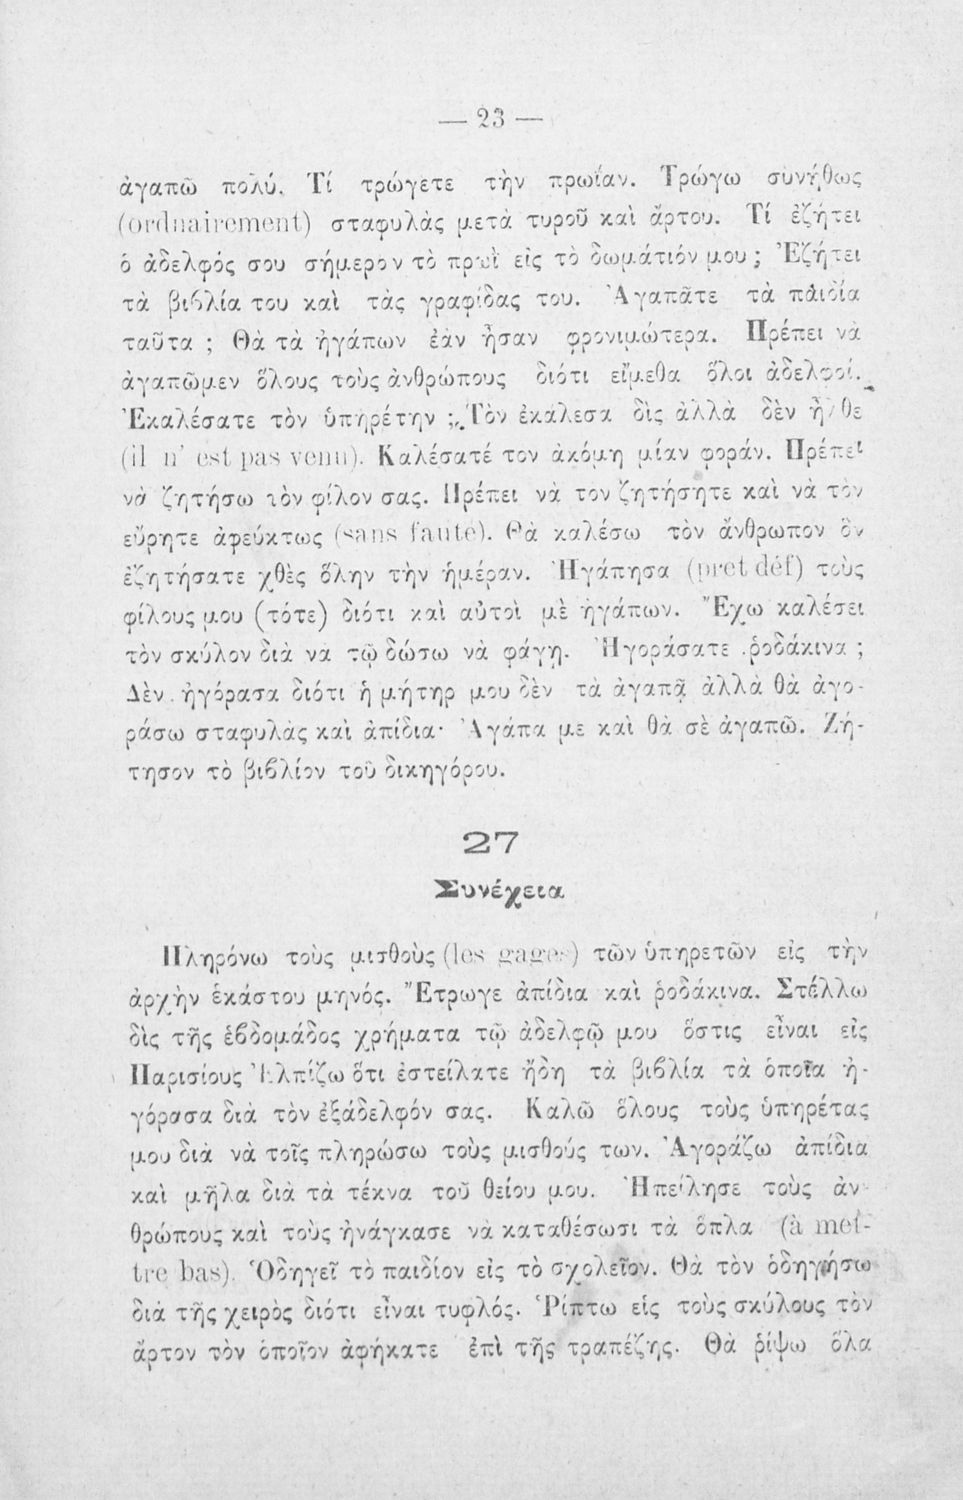 — 23 —
ἀγαπῶ πολύ. Τί τρώγετε τὴν πρωΐαν. Τρώγω συνήθως
(ordnairement) σταφυλὰς μετὰ τυροῦ καὶ ἄρτου. Τί ἐζήτει
ὁ ἀδελφός σου σήμερον τὸ πρωῒ εἰς τὸ δωμάτιόν μου ; Ἐζήτει
τὰ βιβλία του καὶ τὰς γραφίδας του. Ἀγαπᾶτε τὰ παιδία
ταῦτα ; Θὰ τὰ ἠγάπων ἐὰν ἦσαν φρονιμώτερα. Πρέπει νὰ
ἀγαπῶμεν ὅλους τοὺς ἀνθρώπους διότι εἴμεθα ὅλοι ἀδελφοί.
Ἐκαλέσατε τὸν ὑπηρέτην ; Τὸν ἐκάλεσα δὶς ἀλλὰ δὲν ἦλθε
(il n' est pas venu). Καλέσατέ τον ἀκόμη μίαν φοράν. Πρέπει
νὰ ζητήσω τὸν φίλον σας. Πρέπει νὰ τον ζητήσητε καὶ νὰ τὸν
εὕρητε ἀφεύκτως (sans faute). Θὰ καλέσω τὸν ἄνθρωπον ὃν
ἐζητήσατε χθὲς ὅλην τὴν ἡμέραν. Ἠγάπησα (pret déf) τοὺς
φίλους μου (τότε) διότι καὶ αὐτοὶ μὲ ἠγάπων. Ἔχω καλέσει
τὸν σκύλον διὰ να τῷ δώσω νὰ φάγῃ. Ἠγοράσατε ῥοδάκινα ;
Δὲν ἠγόρασα διότι ἡ μήτηρ μου δὲν τὰ ἀγαπᾷ ἀλλὰ θὰ ἀγο-
ράσω σταφυλὰς καὶ ἀπίδια· Ἀγάπα με καὶ θὰ σὲ ἀγαπῶ. Ζή-
τησον τὸ βιβλίον τοῦ δικηγόρου.
27
Συνέχεια
Πληρόνω τοὺς μισθοὺς (les gages) τῶν ὑπηρετῶν εἰς τὴν
ἀρχὴν ἑκάστου μηνός. Ἔτρωγε ἀπίδια καὶ ῥοδάκινα. Στέλλω
δὶς τῆς ἑβδομάδος χρήματα τῷ ἀδελφῷ μου ὅστις εἶναι εἰς
Παρισίους Ἐλπίζω ὅτι ἐστείλατε ἤδη τὰ βιβλία τὰ ὁποῖα ἠ-
γόρασα διὰ τὸν ἐξάδελφόν σας. Καλῶ ὅλους τοὺς ὑπηρέτας
μου διὰ νὰ τοῖς πληρώσω τοὺς μισθούς των. Ἀγοράζω ἀπίδια
καὶ μῆλα διὰ τὰ τέκνα τοῦ θείου μου. Ἠπείλησε τοὺς ἀν-
θρώπους καὶ τοὺς ἠνάγκασε νὰ καταθέσωσι τὰ ὅπλα (à met-
tre bas). Ὁδηγεῖ τὸ παιδίον εἰς τὸ σχολεῖον. Θὰ τὸν ὁδηγήσω
διὰ τῆς χειρὸς διότι εἶναι τυφλός. Ῥίπτω εἰς τοὺς σκύλους τὸν
ἄρτον τὸν ὁποῖον ἀφήκατε ἐπὶ τῆς τραπέζης. Θὰ ῥίψω ὅλα